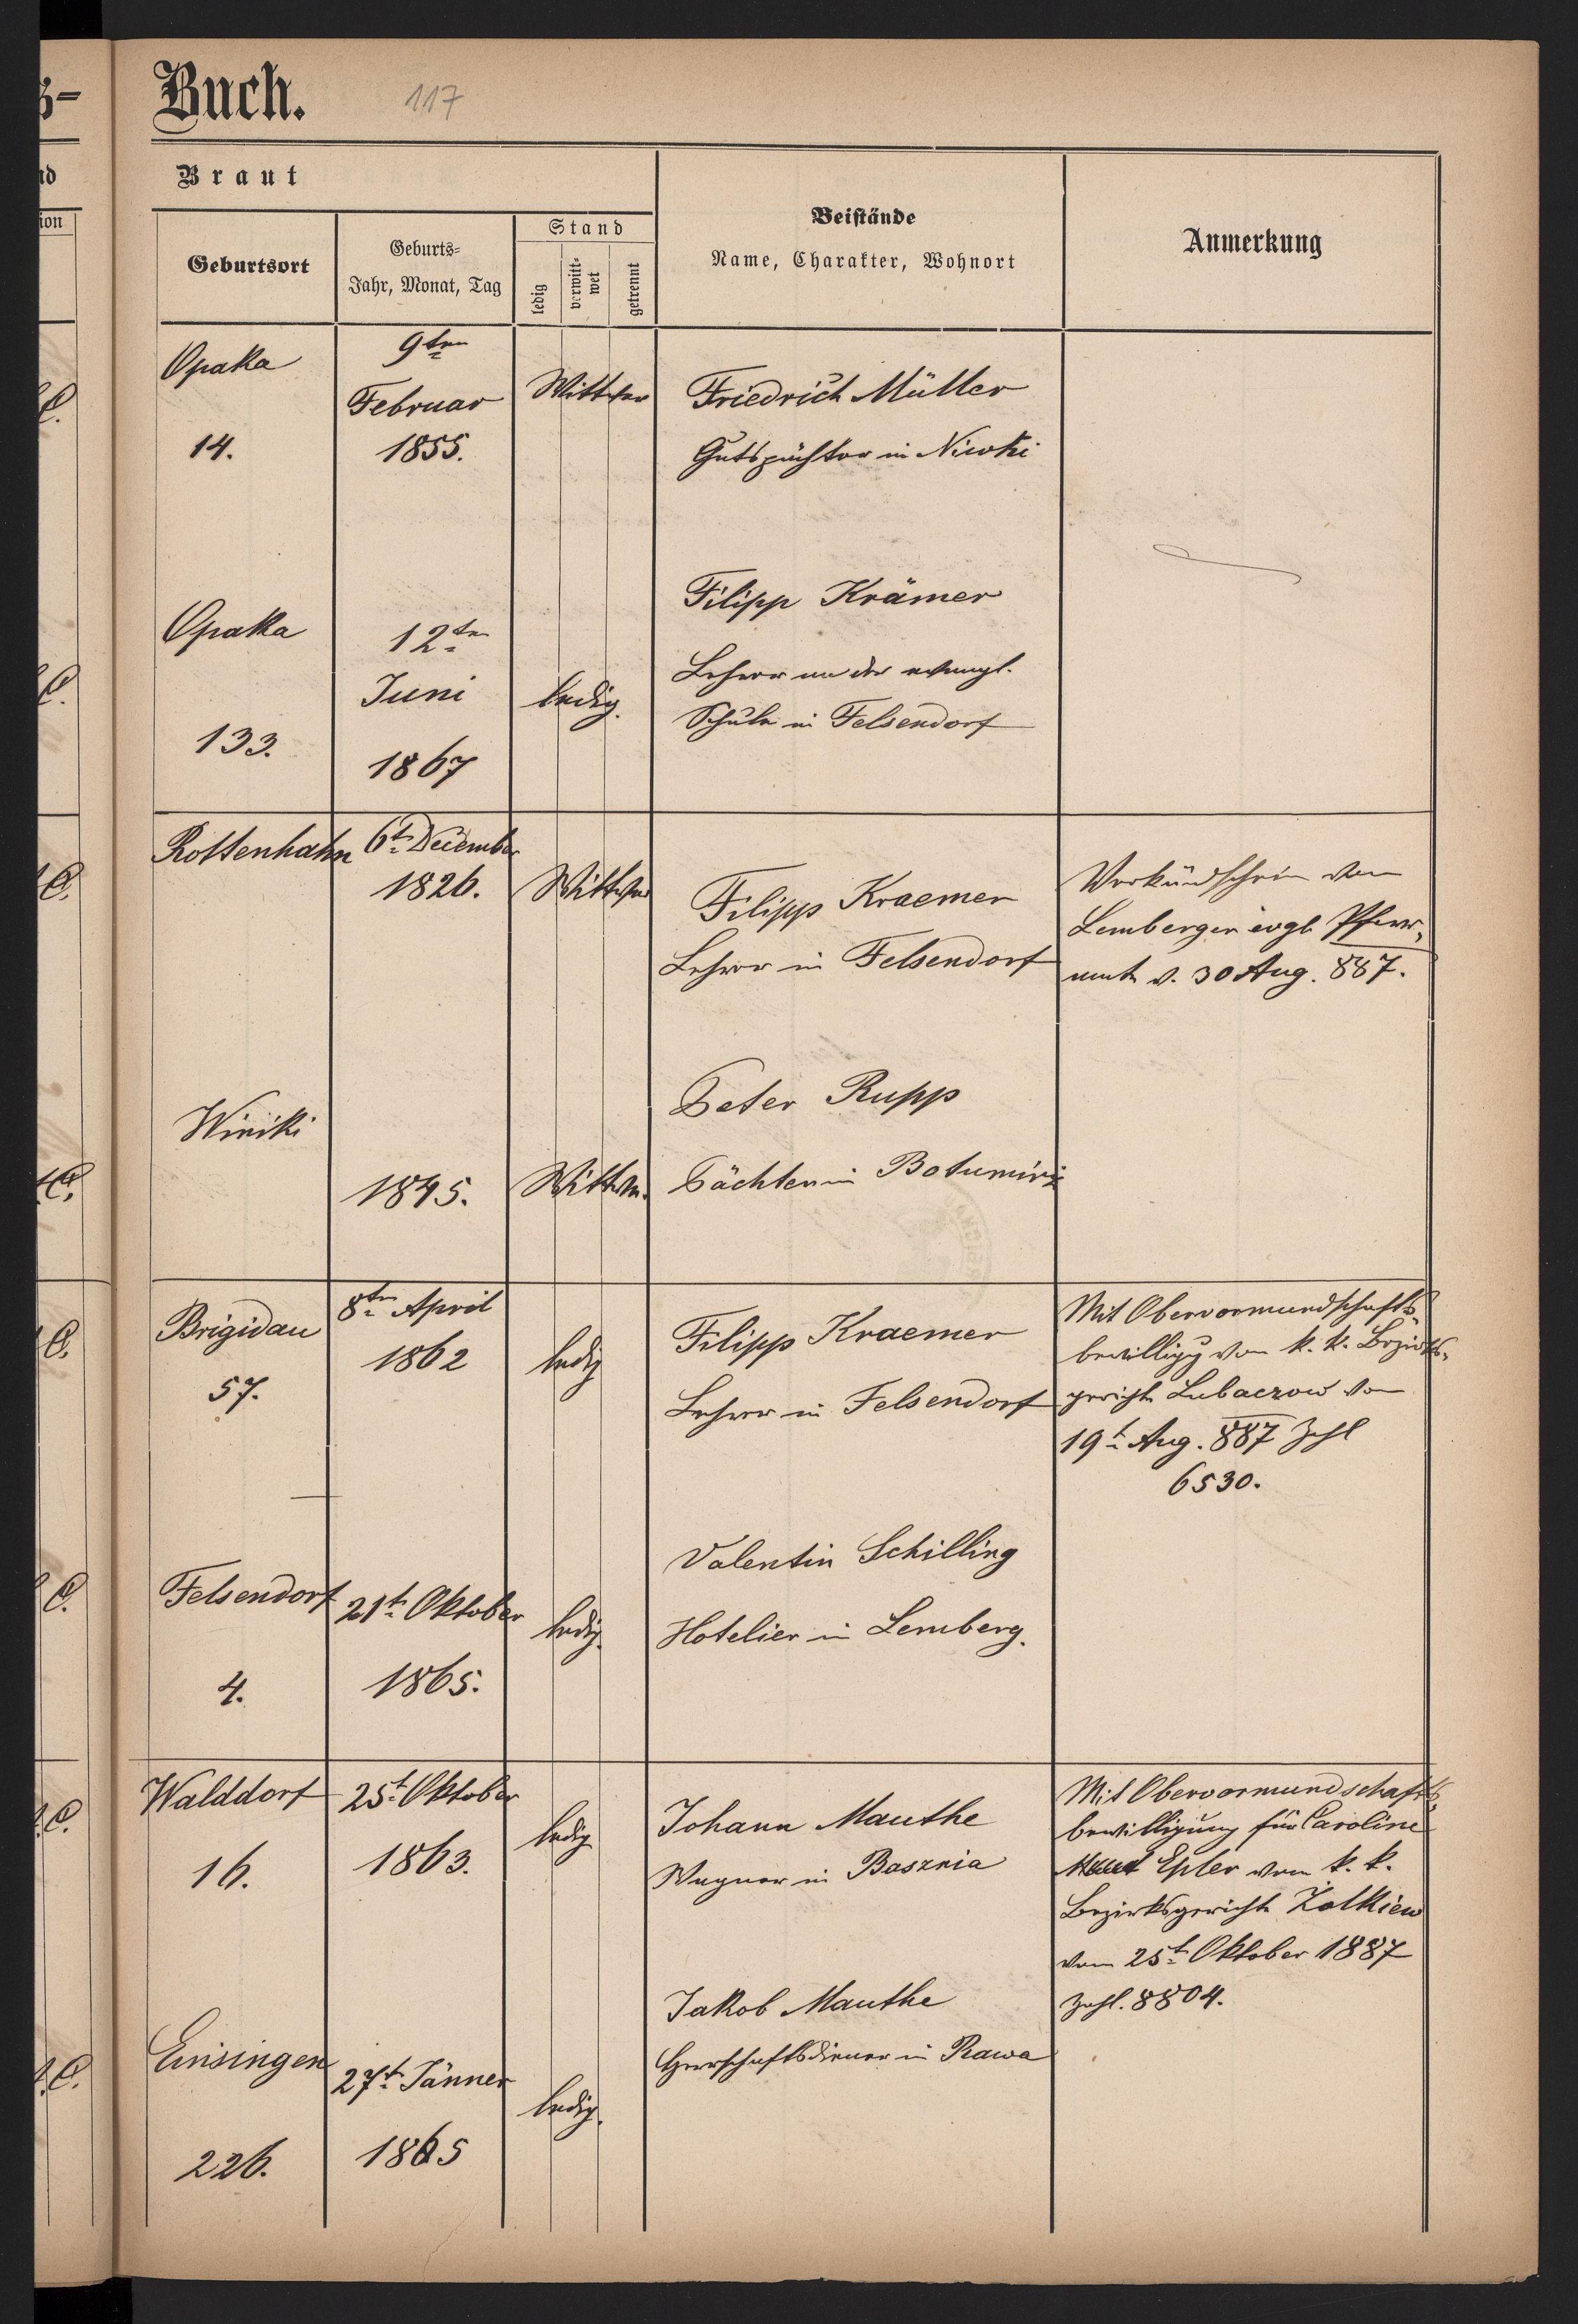 Buch.
117
Braut
Geburtsort
Geburts-
Jahr, Monat, Tag
Stand
ledig
verwitt-
wet
getrennt
Beistände
Name, Charakter, Wohnort
Anmerkung
Opaka
14.
9ten
Februar
1855.
Wittwer
Friedrich Müller
Gutspächter in Niwki
Opaka
133.
12ten
Juni
1867
ledig.
Filipp Krämer
Lehrer an der evangl.
Schule in Felsendorf
Rottenhahn
6t December
1826.
Wittwe
Filipp Kraemer
Lehrer in Felsendorf
Verkündschein vom
Lemberger evgl. Pfarr-
amte v. 30 Aug. 887.
Winiki
1845.
Wittwe.
Peter Rupp
Pächter in
Brigidau
57.
8ten April
1862
ledig
Filipp Kraemer
Lehrer in Felsendorf
Mit Obervormundschafts-
bewilligg vom k. k. Bezirks-
gericht Lubaczow vom
19t Aug. 887 Zahl
6530.
Felsendorf
4.
21t Oktober
1865.
ledig.
Valentin Schilling
Hotelier in Lemberg.
Walddorf
16.
25t Oktober
1863.
ledig
Johann Mauthe
Wagner in Basznia
Mit Obervormundschafts-
bewilligung für Caroline
Epler vom k. k.
Bezirksgericht Żolkiew
vom 25t Oktober 1887
Zahl. 8804.
Einsingen
226.
27t Jänner
1865
ledig.
Jakob Mauthe
Herrschaftsdiener in Rawa